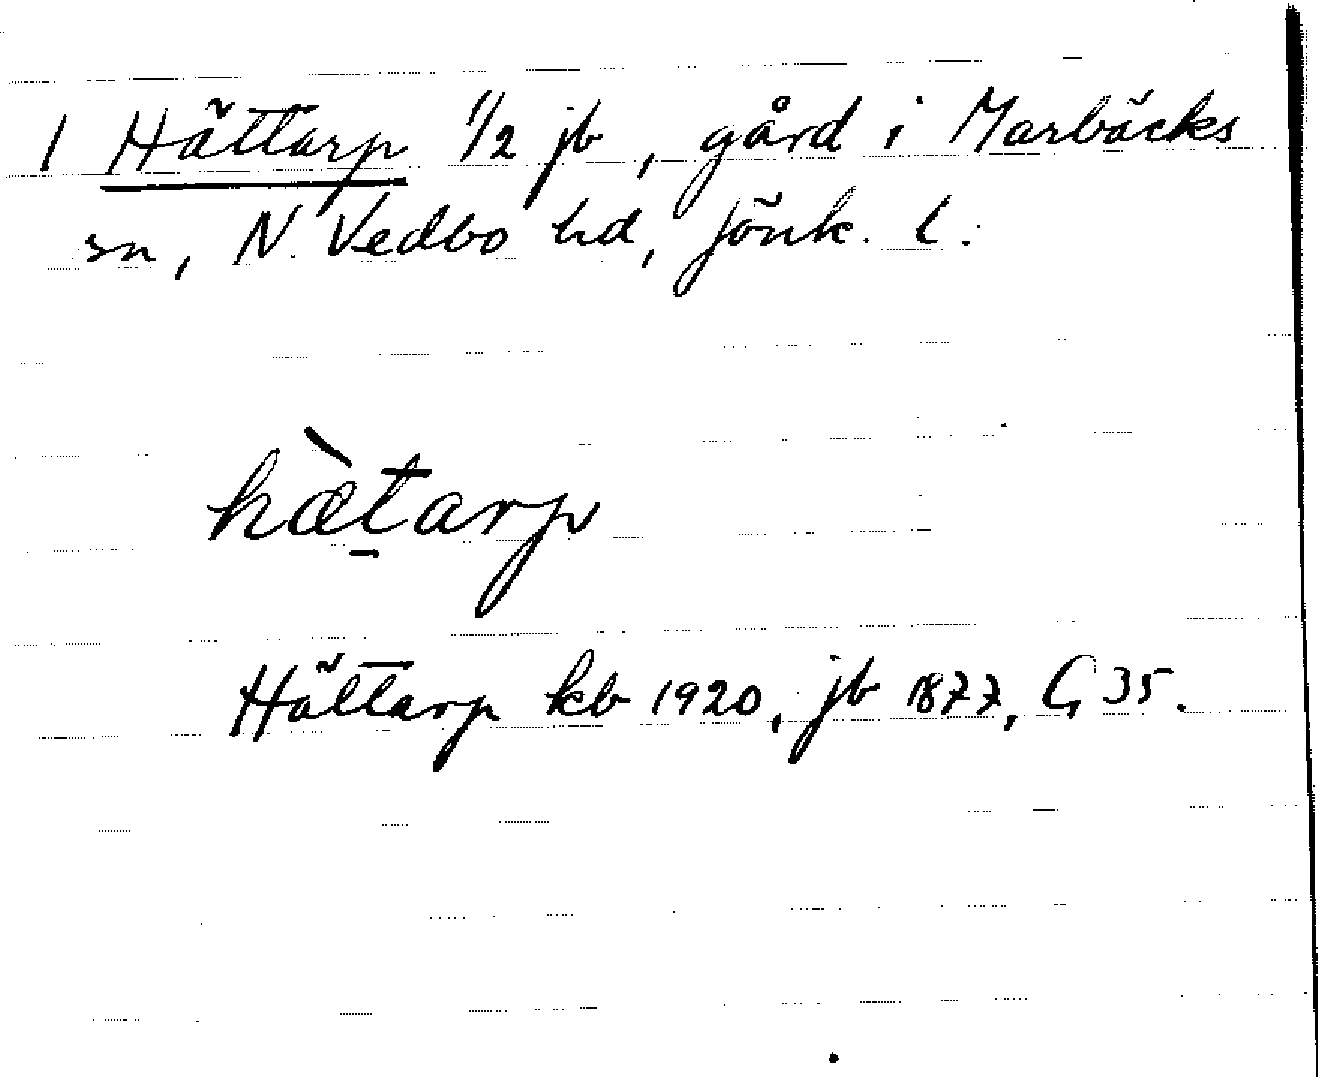 1 Hättarp 1/2 jb, gård i Marbäcks
sn, N. Vedbo hd, Jönk. l.
hæ̀t̠arp
Hättarp kb 1920, jb 1877, G 35.